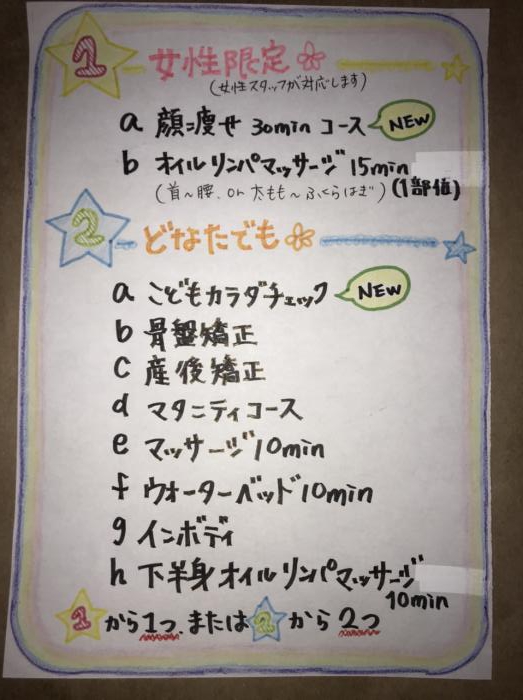 1 女性限定
(女性スタッフが対応します)
a 顔=痩せ 30min コース NEW
b オイルリンパマッサージ 15min
(首〜腰、or 太もも〜ふくらはぎ) (1部位)
2 どなたでも
a こどもカラダチェック NEW
b 骨盤矯正
c 産後矯正
d マタニティコース
e マッサージ10min
f ウォーターベッド10min
g インボディ
h 下半身オイルリンパマッサージ
10min
1から1つ、または2から2つ